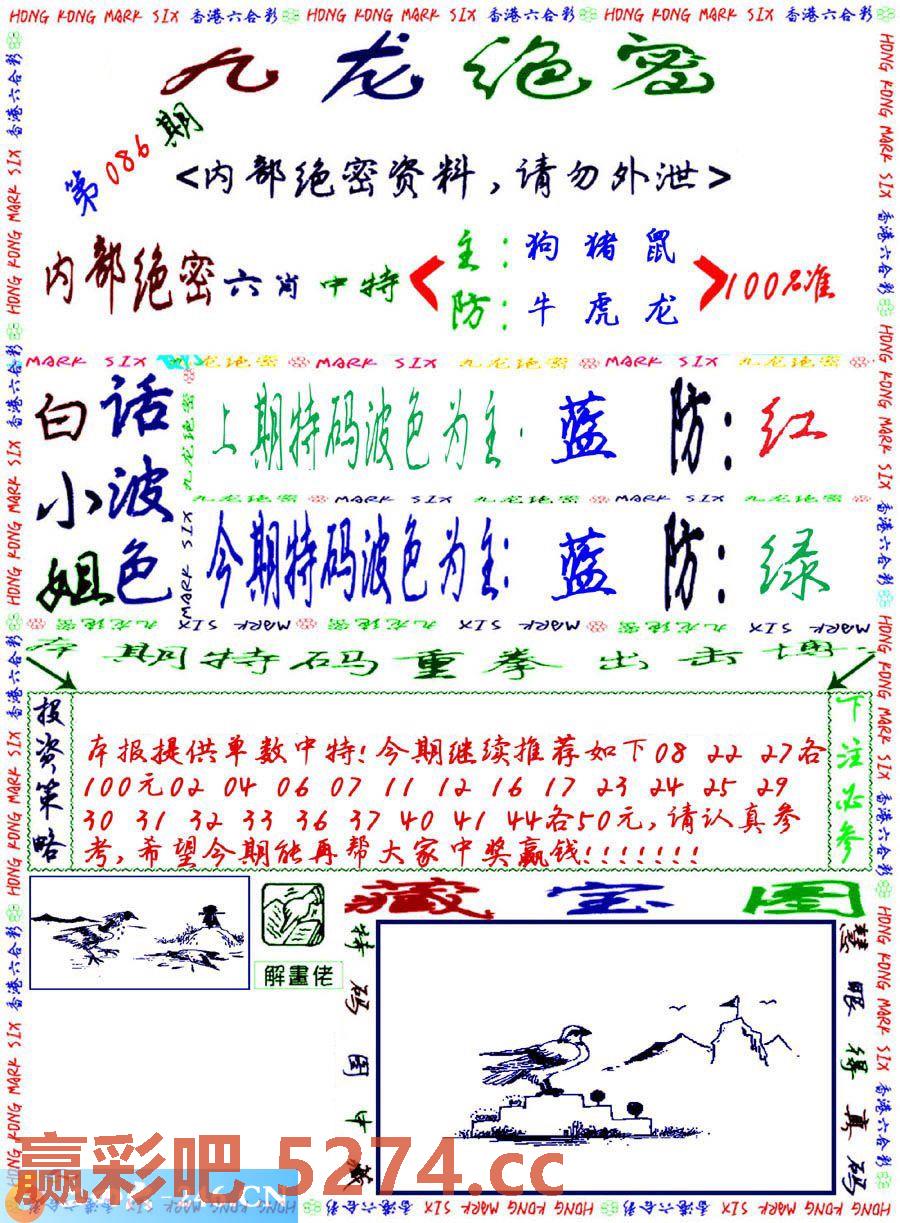 HONG KONG MARK SIX 香港六合彩 HONG KONG MARK SIX 香港六合彩 HONG KONG MARK SIX 香港六合彩
九龙绝密
第086期
<内部绝密资料,请勿外泄>
内部绝密六肖中特
主:狗 猪 鼠
防:牛 虎 龙
100%准
MARK SIX 九龙绝密 MARK SIX 九龙绝密 MARK SIX 九龙绝密
白话
小波
姐色
上期特码波色为主: 蓝 防: 红
九龙绝密 MARK SIX 九龙绝密 MARK SIX 九龙绝密
今期特码波色为主: 蓝 防: 绿
MARK SIX 九龙绝密 MARK SIX 九龙绝密 MARK SIX 九龙绝密
本期特码重拳出击博
投资策略
本报提供单数中特!今期继续推荐如下08 22 27各
100元02 04 06 07 11 12 16 17 23 24 25 29
30 31 32 33 36 37 40 41 44各50元,请认真参
考,希望今期能再帮大家中奖赢钱!!!!!!!
下注必参
藏宝图
解畫佬
特码图中藏
慧眼得真码
赢彩吧 5274.cc
246.CN